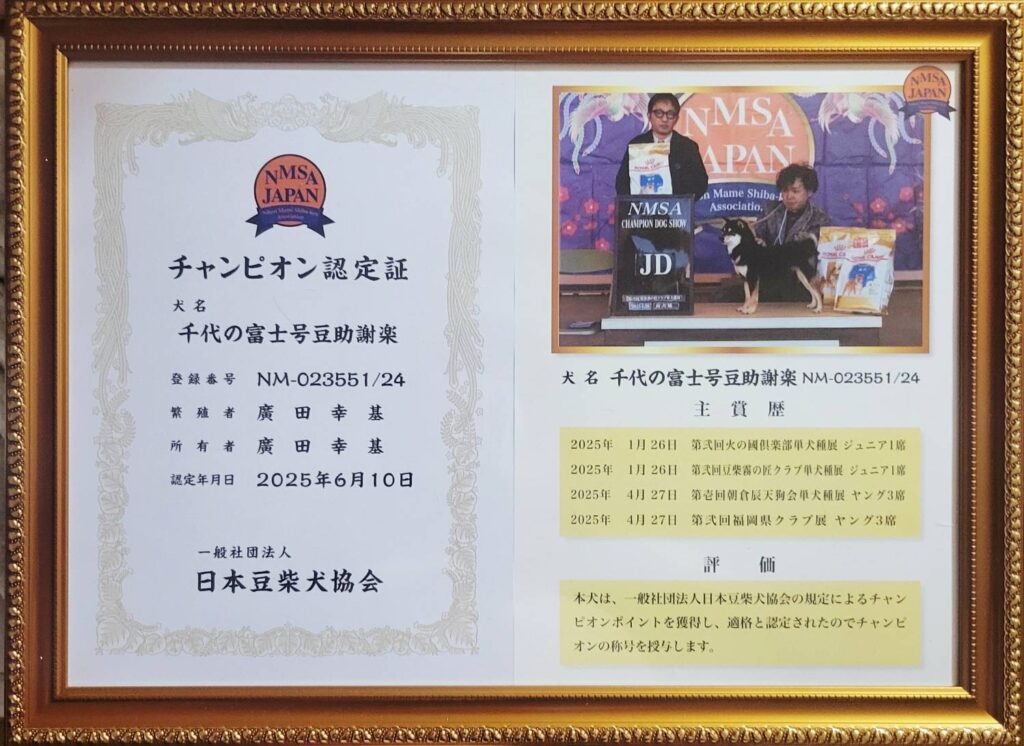 NMSA
JAPAN
Nihon Mame Shiba-inu
Association
チャンピオン認定証
犬名
千代の富士号豆助謝楽
登録番号 NM-023551/24
繁殖者 廣田幸基
所有者 廣田幸基
認定年月日 2025年6月10日
一般社団法人
日本豆柴犬協会
NMSA
JAPAN
NMSA
JAPAN
n Mame Shiba-
Associatio
ROYAL CANIN
NMSA
CHAMPION DOG SHOW
JD
犬名 千代の富士号豆助謝楽 NM-023551/24
主賞歴
2025年 1月26日 第弐回火の國倶楽部単犬種展 ジュニア1席
2025年 1月26日 第弐回豆柴霧の匠クラブ単犬種展 ジュニア1席
2025年 4月27日 第壱回朝倉辰天狗会単犬種展 ヤング3席
2025年 4月27日 第弐回福岡県クラブ展 ヤング3席
評価
本犬は、一般社団法人日本豆柴犬協会の規定によるチャン
ピオンポイントを獲得し、適格と認定されたのでチャンピ
オンの称号を授与します。